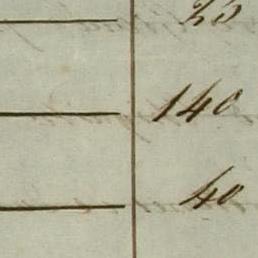 140
40